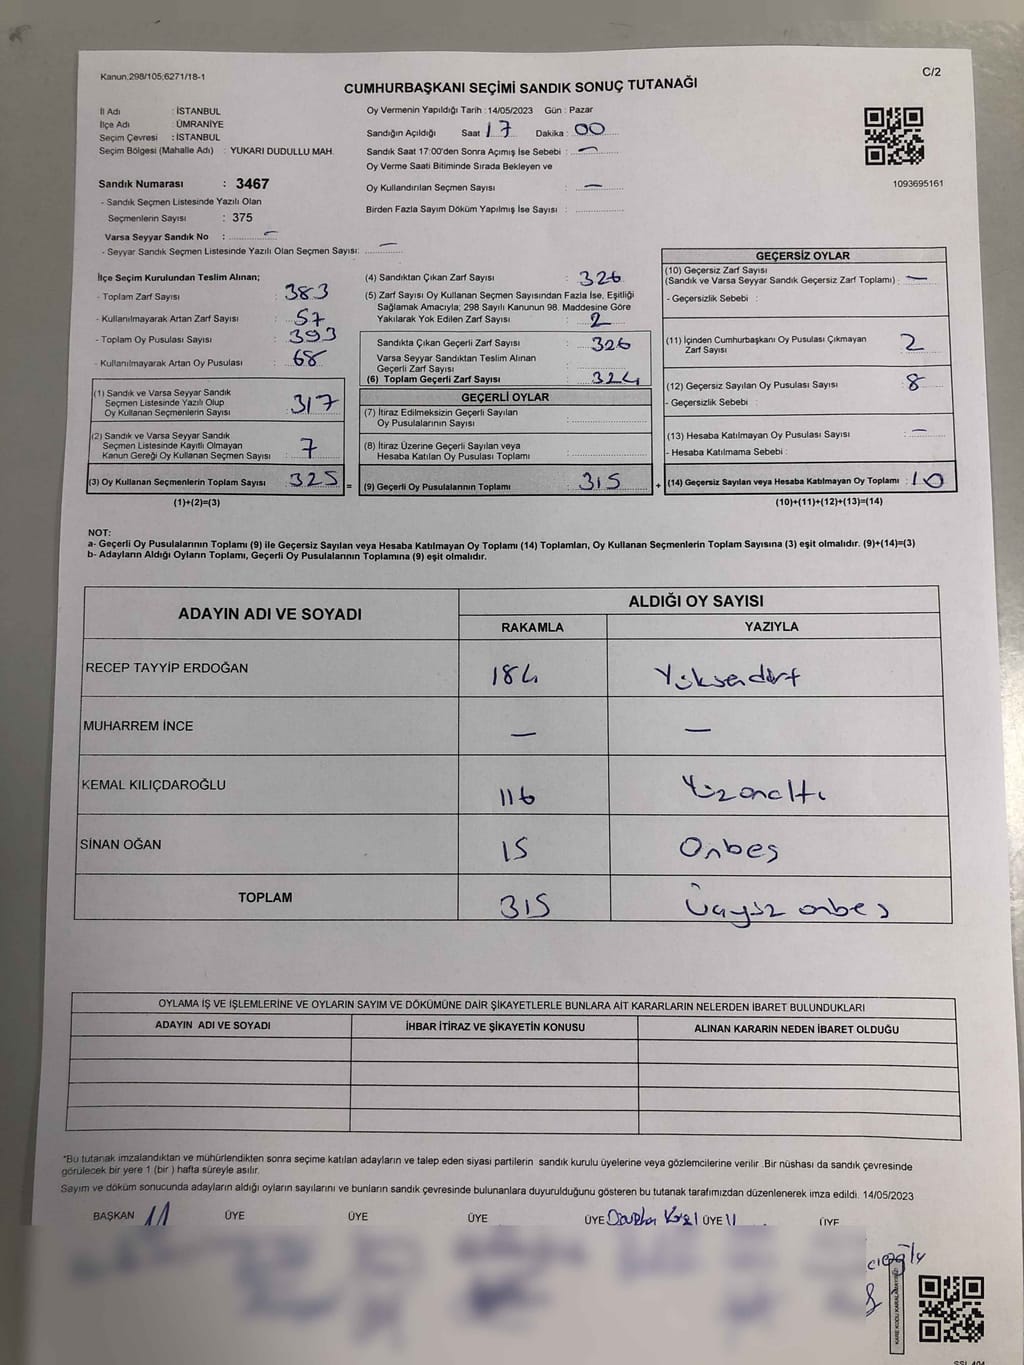 Kanun.298/105;6271/18-1
C/2
CUMHURBAŞKANI SEÇİMİ SANDIK SONUÇ TUTANAĞI
İl Adı : İSTANBUL
İlçe Adı : ÜMRANİYE
Seçim Çevresi : İSTANBUL
Seçim Bölgesi (Mahalle Adı) : YUKARI DUDULLU MAH.
Sandık Numarası : 3467
- Sandık Seçmen Listesinde Yazılı Olan
Seçmenlerin Sayısı : 375
Varsa Seyyar Sandık No : —
- Seyyar Sandık Seçmen Listesinde Yazılı Olan Seçmen Sayısı: —
Oy Vermenin Yapıldığı Tarih : 14/05/2023 Gün : Pazar
Sandığın Açıldığı Saat 17 Dakika : 00
Sandık Saat 17:00'den Sonra Açımış İse Sebebi : —
Oy Verme Saati Bitiminde Sırada Bekleyen ve
Oy Kullandırılan Seçmen Sayısı : —
Birden Fazla Sayım Döküm Yapılmış İse Sayısı :
1093695161
İlçe Seçim Kurulundan Teslim Alınan;
- Toplam Zarf Sayısı : 383
- Kullanılmayarak Artan Zarf Sayısı : 57
- Toplam Oy Pusulası Sayısı : 393
- Kullanılmayarak Artan Oy Pusulası : 68
(1) Sandık ve Varsa Seyyar Sandık
Seçmen Listesinde Yazılı Olup
Oy Kullanan Seçmenlerin Sayısı : 317
(2) Sandık ve Varsa Seyyar Sandık
Seçmen Listesinde Kayıtlı Olmayan
Kanun Gereği Oy Kullanan Seçmen Sayısı : 7
(3) Oy Kullanan Seçmenlerin Toplam Sayısı : 325 =
(1)+(2)=(3)
(4) Sandıktan Çıkan Zarf Sayısı : 326
(5) Zarf Sayısı Oy Kullanan Seçmen Sayısından Fazla İse, Eşitliği
Sağlamak Amacıyla; 298 Sayılı Kanunun 98. Maddesine Göre
Yakılarak Yok Edilen Zarf Sayısı : 2
Sandıkta Çıkan Geçerli Zarf Sayısı : 326
Varsa Seyyar Sandıktan Teslim Alınan
Geçerli Zarf Sayısı :
(6) Toplam Geçerli Zarf Sayısı : 324
GEÇERLİ OYLAR
(7) İtiraz Edilmeksizin Geçerli Sayılan
Oy Pusulalarının Sayısı :
(8) İtiraz Üzerine Geçerli Sayılan veya
Hesaba Katılan Oy Pusulası Toplamı :
(9) Geçerli Oy Pusulalarının Toplamı : 315 +
GEÇERSİZ OYLAR
(10) Geçersiz Zarf Sayısı
(Sandık ve Varsa Seyyar Sandık Geçersiz Zarf Toplamı) : —
- Geçersizlik Sebebi :
(11) İçinden Cumhurbaşkanı Oy Pusulası Çıkmayan
Zarf Sayısı : 2
(12) Geçersiz Sayılan Oy Pusulası Sayısı : 8
- Geçersizlik Sebebi :
(13) Hesaba Katılmayan Oy Pusulası Sayısı : —
- Hesaba Katılmama Sebebi :
(14) Geçersiz Sayılan veya Hesaba Katılmayan Oy Toplamı : 10
(10)+(11)+(12)+(13)=(14)
NOT:
a- Geçerli Oy Pusulalarının Toplamı (9) ile Geçersiz Sayılan veya Hesaba Katılmayan Oy Toplamı (14) Toplamları, Oy Kullanan Seçmenlerin Toplam Sayısına (3) eşit olmalıdır. (9)+(14)=(3)
b- Adayların Aldığı Oyların Toplamı, Geçerli Oy Pusulalarının Toplamına (9) eşit olmalıdır.
ADAYIN ADI VE SOYADI ALDIĞI OY SAYISI
RAKAMLA YAZIYLA
RECEP TAYYİP ERDOĞAN 184 Yüksendört
MUHARREM İNCE — —
KEMAL KILIÇDAROĞLU 116 Yüzonaltı
SİNAN OĞAN 15 Onbeş
TOPLAM 315 Üçyüz onbeş
OYLAMA İŞ VE İŞLEMLERİNE VE OYLARIN SAYIM VE DÖKÜMÜNE DAİR ŞİKAYETLERLE BUNLARA AİT KARARLARIN NELERDEN İBARET BULUNDUKLARI
ADAYIN ADI VE SOYADI İHBAR İTİRAZ VE ŞİKAYETİN KONUSU ALINAN KARARIN NEDEN İBARET OLDUĞU
*Bu tutanak imzalandıktan ve mühürlendikten sonra seçime katılan adayların ve talep eden siyasi partilerin sandık kurulu üyelerine veya gözlemcilerine verilir .Bir nüshası da sandık çevresinde
görülecek bir yere 1 (bir ) hafta süreyle asılır.
Sayım ve döküm sonucunda adayların aldığı oyların sayılarını ve bunların sandık çevresinde bulunanlara duyurulduğunu gösteren bu tutanak tarafımızdan düzenlenerek imza edildi. 14/05/2023
BAŞKAN ÜYE ÜYE ÜYE ÜYE ÜYE ÜYE
KARE KODU KARALAMAYINIZ